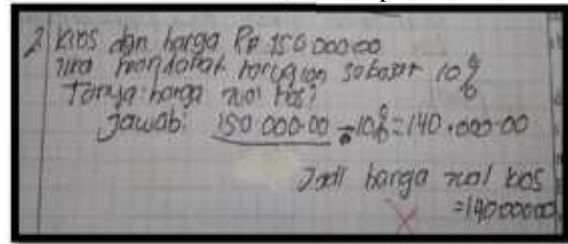 2. Kios dgn harga Rp 150 000.00
Jika mendapat kerugian sebesar 10%
Tanya: harga jual kos?
Jawab: 150 000.00 ÷ 10% = 140.000.00
Jadi harga jual kos
= 14000000